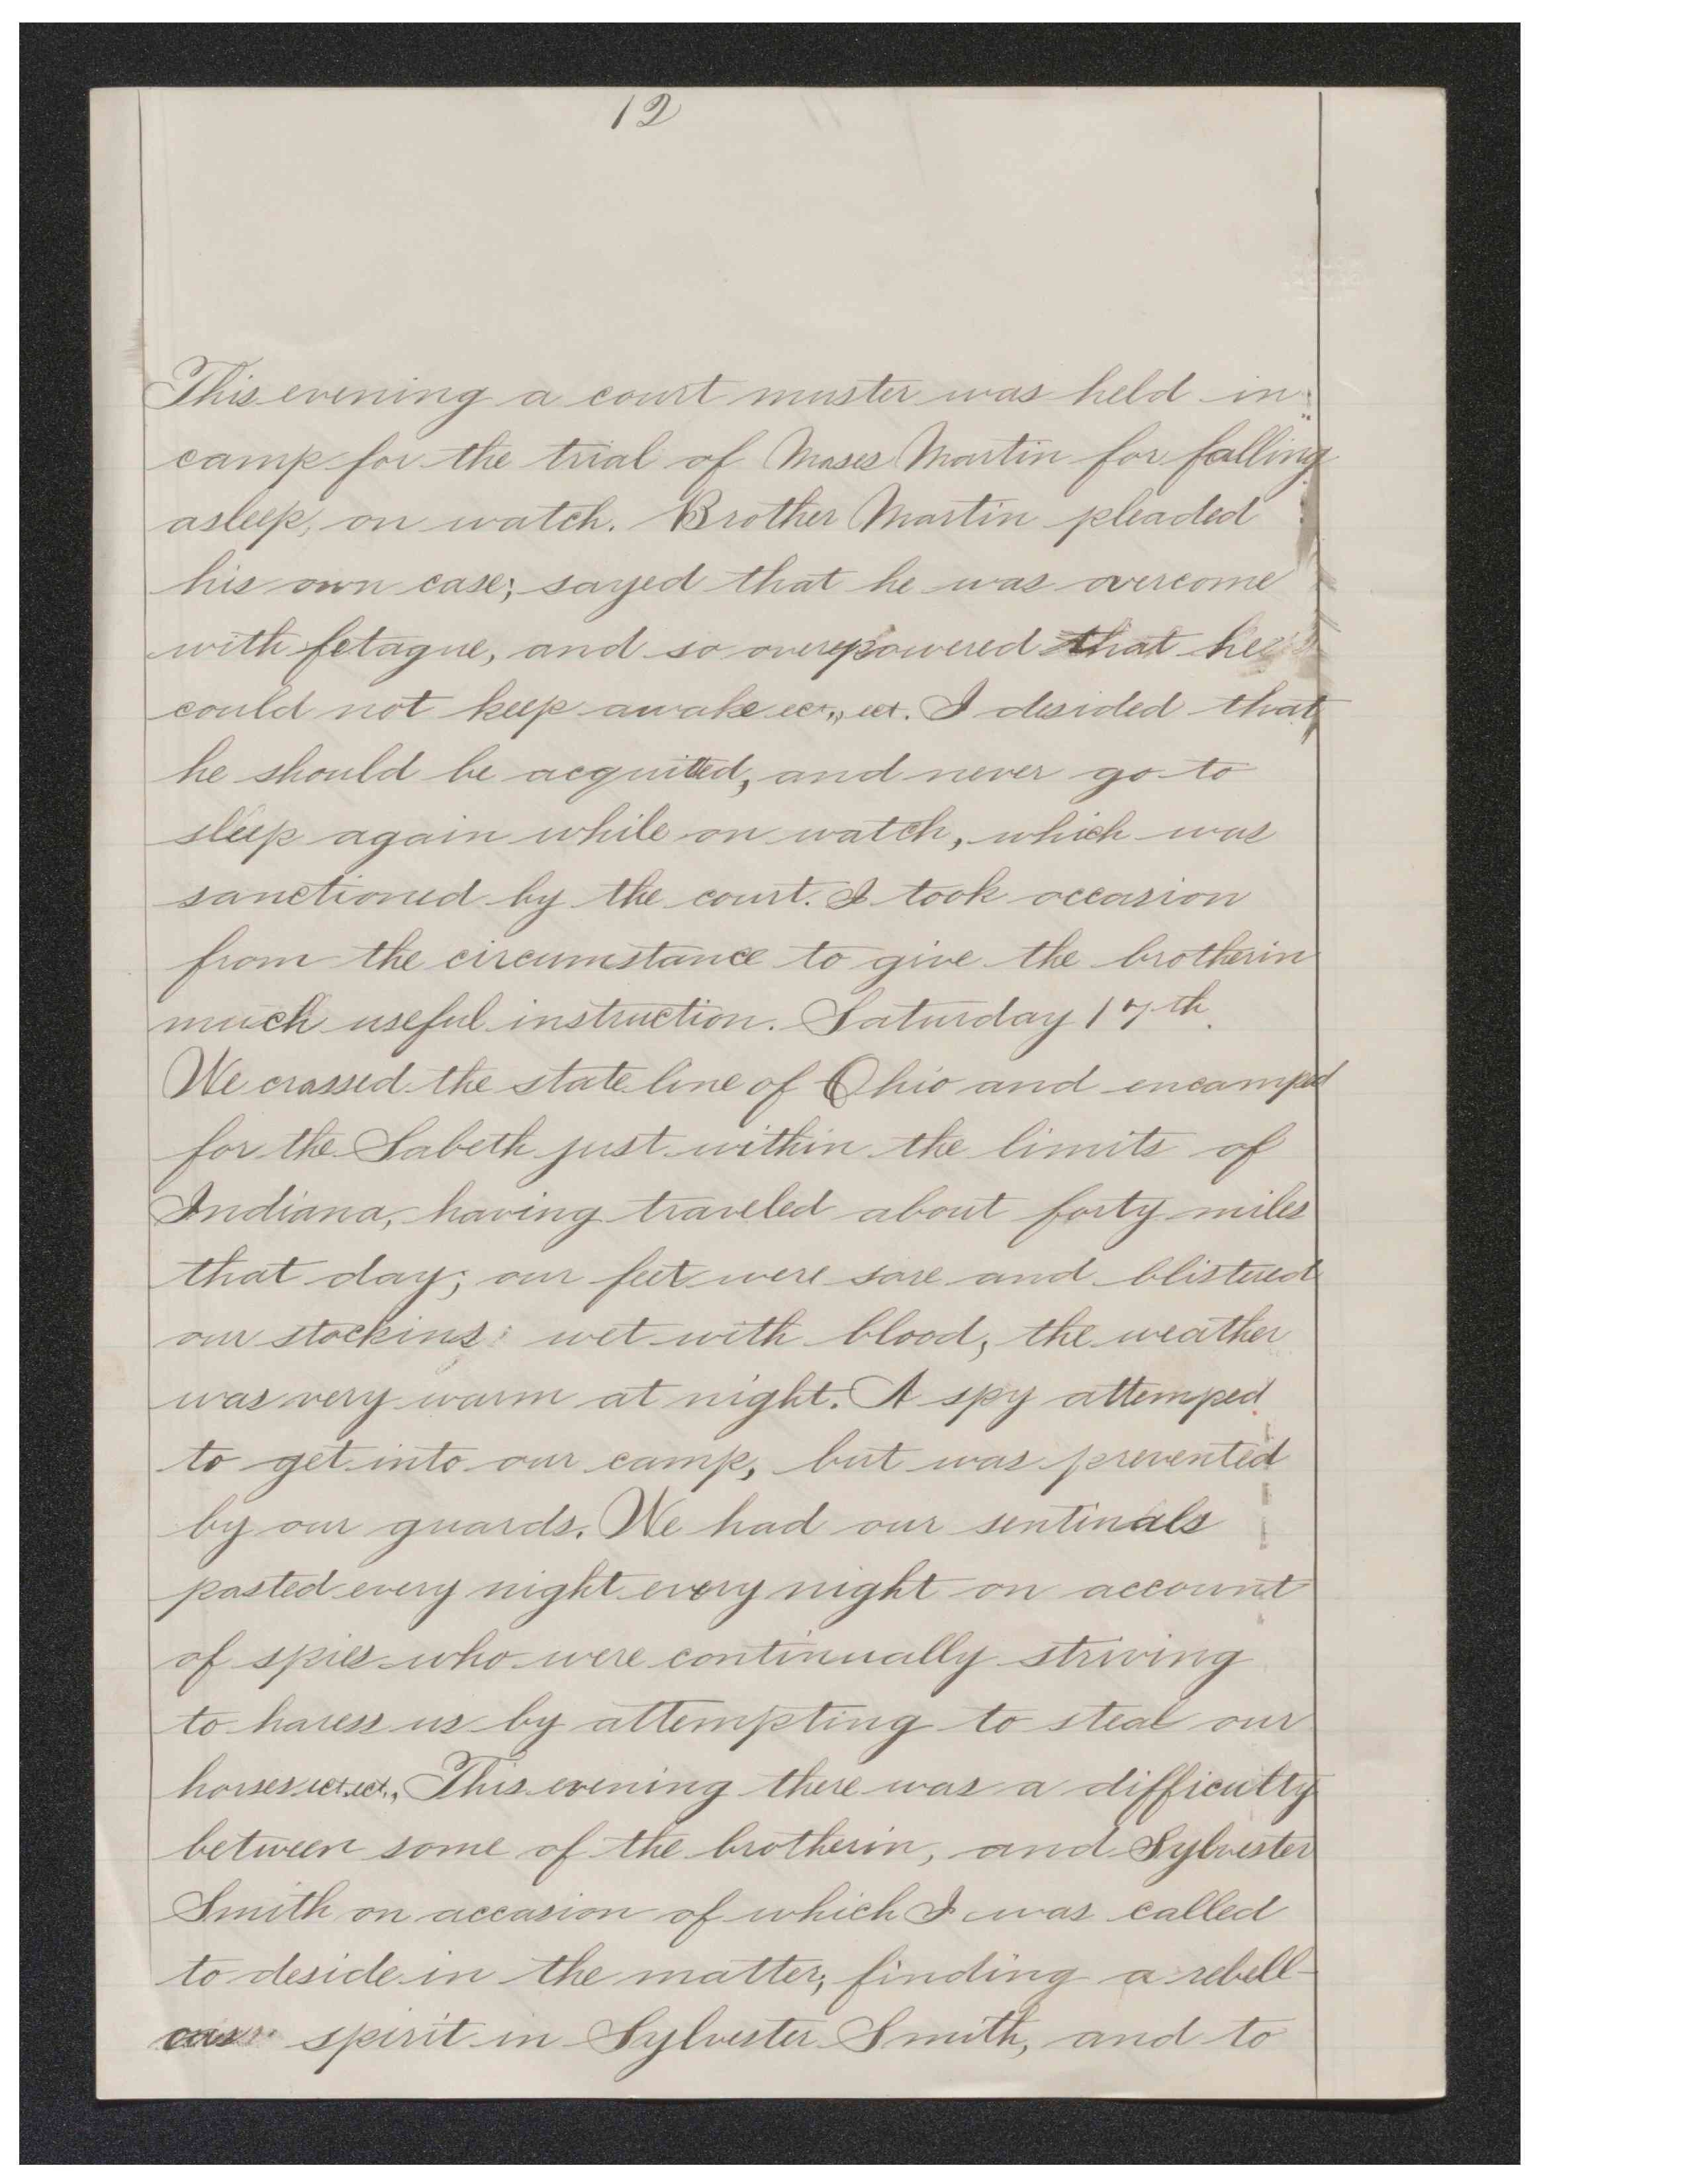 12
This evening a court muster was held in
camp for the trial of Moses Martin for falling
asleep, on watch. Brother Martin pleaded
his own case; sayed that he was overcome
with fetague, and so overepowered that he
could not keep awake ect., ect. I desided that
he should be acquitted, and never go to
sleep again while on watch, which was
sanctioned by the court. I took occasion
from the circumstance to give the brotherin
much useful instruction. Saturday 17th.
We crossed the state line of Ohio and encamped
for the Sabeth just within the limits of
Indiana, having traveled about forty miles
that day; our feet were sore and blistered
our stockins: wet with blood, the weather
was very warm at night. A spy attemped
to get into our camp, but was prevented
by our guards. We had our sentinals
posted every night every night on account
of spies who were continually striving
to haress us by attempting to steal our
horses ect. ect., This evening there was a difficulty
between some of the brotherin, and Sylvester
Smith on occasion of which I was called
to deside in the matter; finding a rebell-
ous spirit in Sylvester Smith, and to